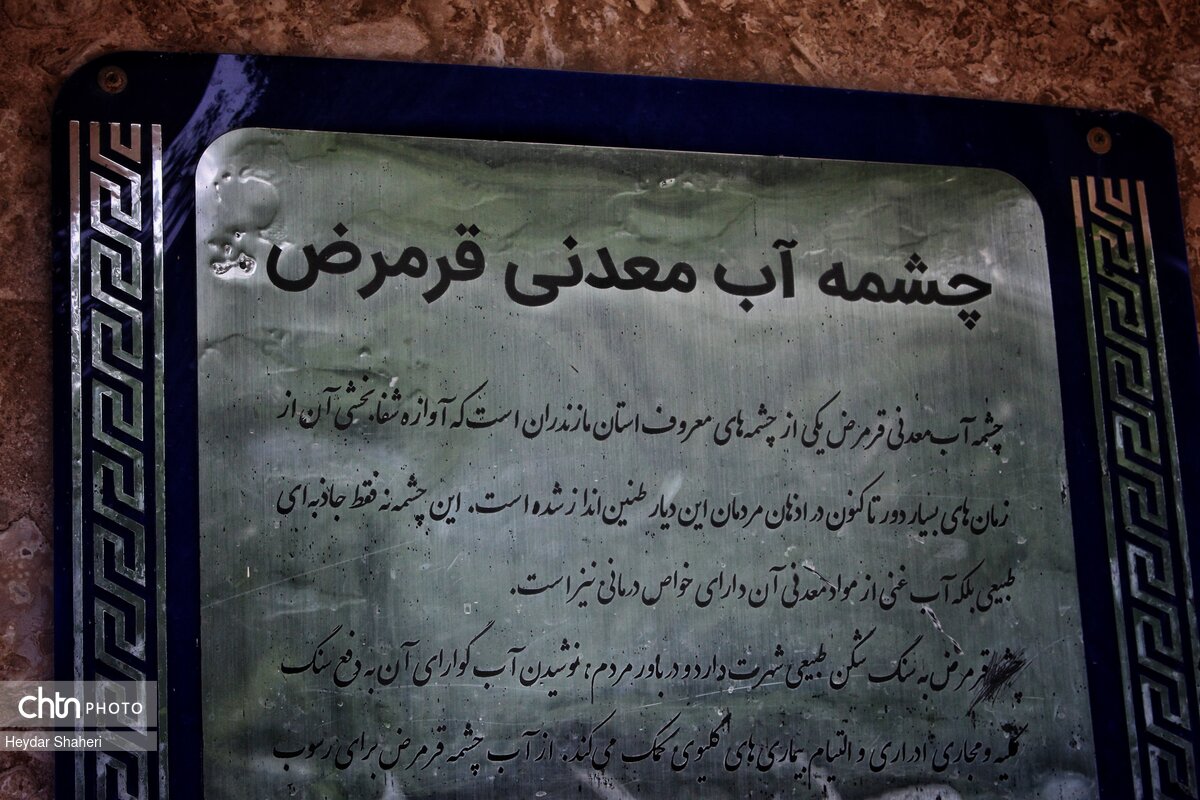 چشمه آب معدنی قرمرض
چشمه آب معدنی قرمرض یکی از چشمه‌های معروف استان مازندران است که آوازه شفابخشی آن از
زمان‌های بسیار دور تا کنون در اذهان مردمان این دیار طنین انداز شده است. این چشمه نه فقط جاذبه‌ای
طبیعی بلکه آب غنی از مواد معدنی آن دارای خواص درمانی نیز است.
قرمرض به سنگ شکن طبیعی شهرت دارد و در باور مردم، نوشیدن آب گوارای آن به دفع سنگ
کلیه و مجاری ادراری و التیام بیماری‌های کلیوی کمک می‌کند. از آب چشمه قرمرض برای رسوب
chtn PHOTO
Heydar Shaheri